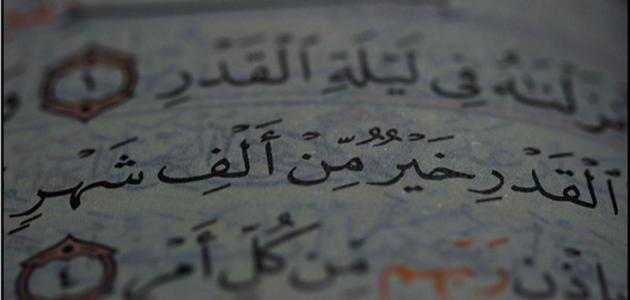 أَنزَلْنَٰهُ فِى لَيْلَةِ ٱلْقَدْرِ ١ و
ٱلْقَدْرِ خَيْرٌ مِّنْ أَلْفِ شَهْرٍ
بِإِذْنِ رَبِّهِم مِّن كُلِّ أَمْرٍ ٤